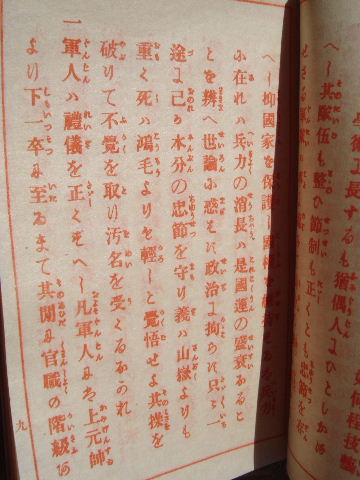 學術に長するも猶偶人にひとしかる
へし其隊伍も整ひ節制も正くとも忠節を存
へし抑國家を保護し國權を維持するは兵力
に在れは兵力の消長は是國運の盛衰なるこ
とを辨へ世論に惑はす政治に拘らす只々一
途に己か本分の忠節を守り義は山嶽よりも
重く死は鴻毛よりも輕しと覺悟せよ其操を
破りて不覺を取り汚名を受くるなかれ
一軍人は禮儀を正くすへし凡軍人には上元帥
より下一卒に至るまて其間に官職の階級あ
九